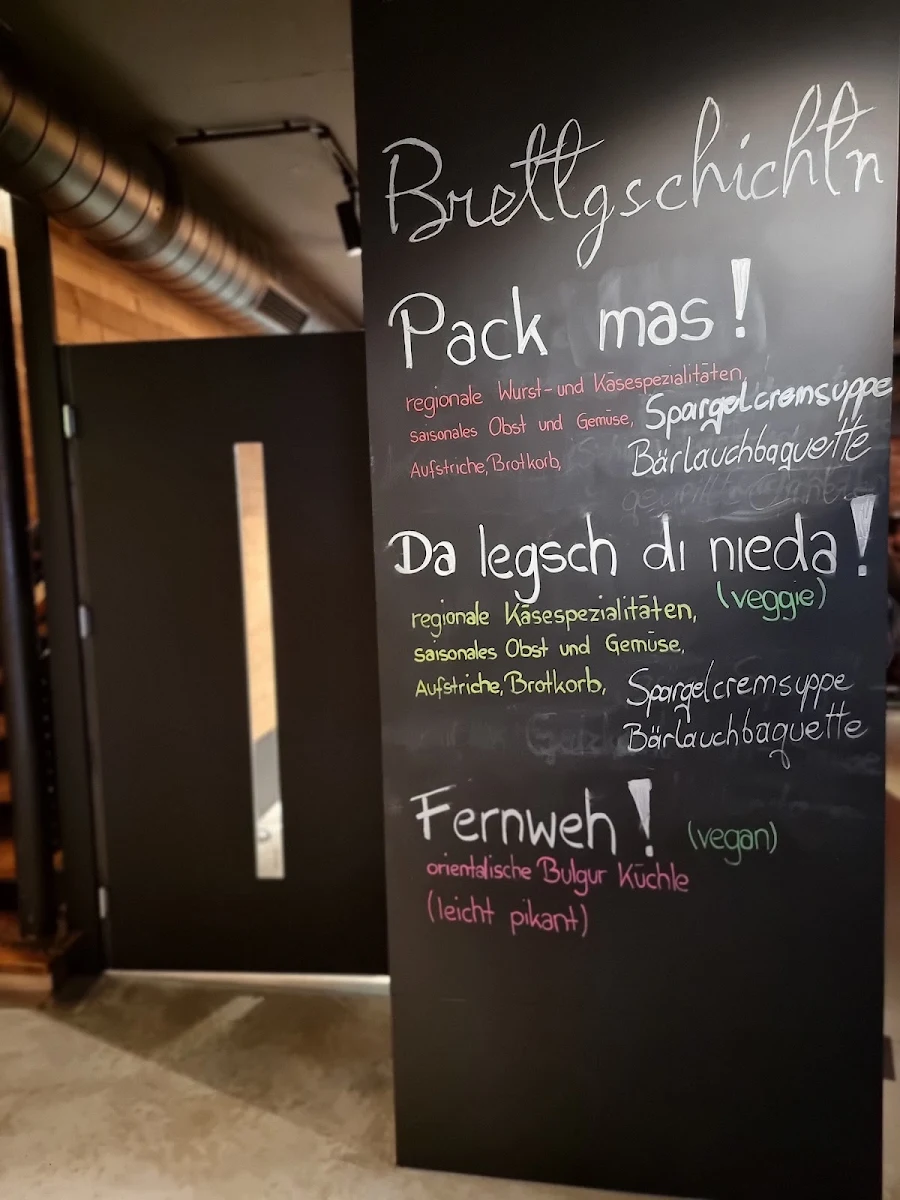 Brettgschichtn
Pack mas!
regionale Wurst- und Käsespezialitäten,
saisonales Obst und Gemüse, Spargelcremsuppe
Aufstriche, Brotkorb, Bärlauchbaguette
Da legsch di nieda!
(veggie)
regionale Käsespezialitäten,
saisonales Obst und Gemüse,
Aufstriche, Brotkorb, Spargelcremsuppe
Bärlauchbaguette
Fernweh! (vegan)
orientalische Bulgur Küchle
(leicht pikant)